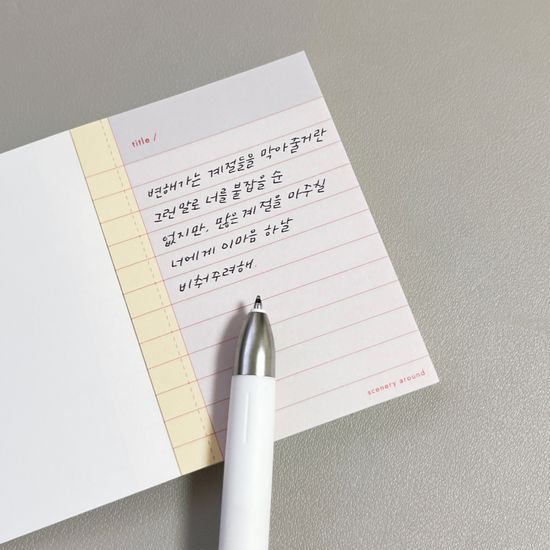 title /
변해가는 계절들을 막아줄거란
그런말로 너를 붙잡을 순
없지만, 많은 계절을 마주칠
너에게 이마음 하날
비춰주려해.
scenery around